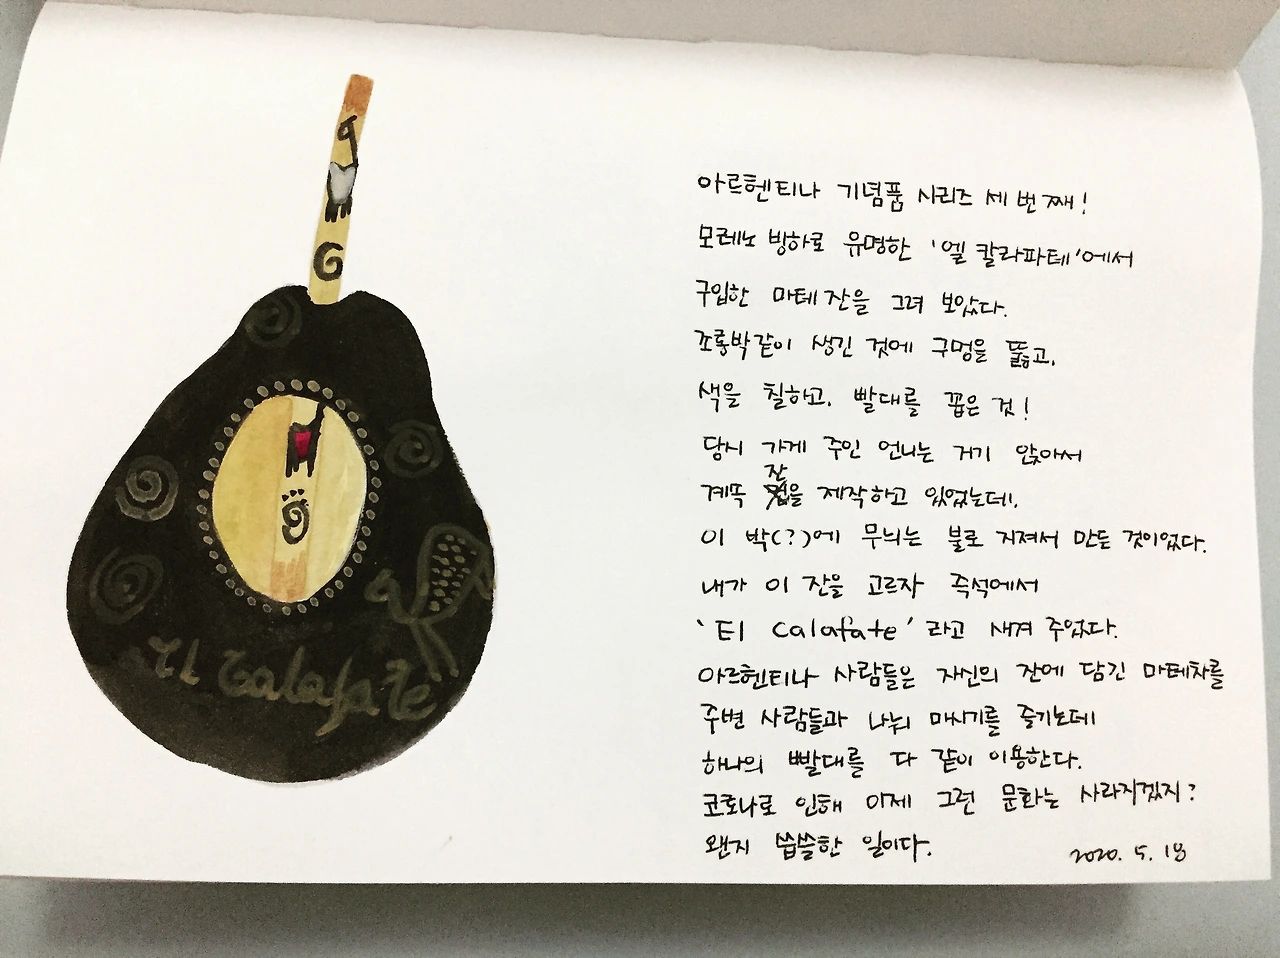 El Calafate
아르헨티나 기념품 시리즈 세 번째!
모레노 빙하로 유명한 '엘 칼라파테'에서
구입한 마테 잔을 그려 보았다.
조롱박같이 생긴 것에 구멍을 뚫고,
색을 칠하고, 빨대를 꼽은 것!
당시 가게 주인 언니는 거기 앉아서
계똑 잔을 제작하고 있었는데,
이 박(?)에 무늬는 불로 지져서 만든 것이었다.
내가 이 잔을 고르자 즉석에서
'El Calafate'라고 새겨 주었다.
아르헨티나 사람들은 자신의 잔에 담긴 마테차를
주변 사람들과 나눠 마시기를 즐기는데
하나의 빨대를 다 같이 이용한다.
코로나로 인해 이제 그런 문화는 사라지겠지?
왠지 씁쓸한 일이다.
2020. 5. 18